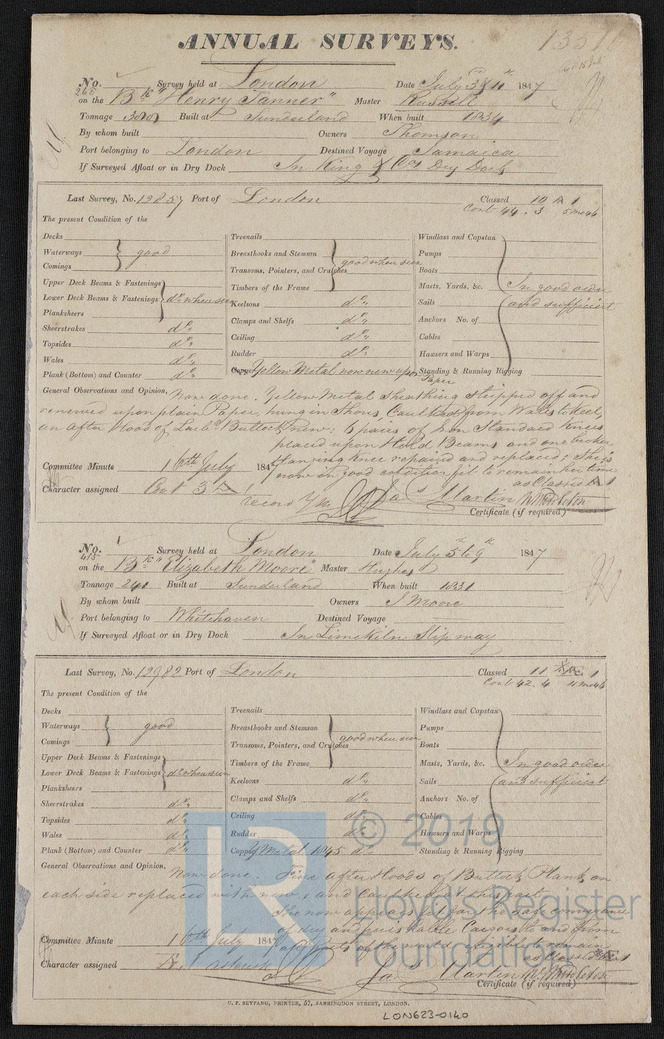 ANNUAL SURVEYS.
No. 268 Survey held at London Date July 3 & 11th 1847
on the Bk "Henry Tanner" Master Russell
Tonnage 390 Built at Sunderland When built 1834
By whom built Owners Thomson
Port belonging to London Destined Voyage Jamaica
If Surveyed Afloat or in Dry Dock In King & Cos Dry Dock
Last Survey, No. 12857 Port of London Classed 10 A 1
Cont 44. 3 5 me46
The present Condition of the
Decks
Waterways good
Comings
Upper Deck Beams & Fastenings
Lower Deck Beams & Fastenings do when seen
Planksheers
Sheerstrakes do
Topsides do
Wales do
Plank (Bottom) and Counter do
Treenails
Breasthooks and Stemson good when seen
Transoms, Pointers, and Crutches
Timbers of the Frame
Keelsons do
Clamps and Shelfs do
Ceiling do
Rudder do
Copper Yellow Metal now new upon Paper
Windlass and Capstan
Pumps
Boats
Masts, Yards, &c. In good order
Sails and sufficient
Anchors No. of
Cables
Hawsers and Warps
Standing & Running Rigging
General Observations and Opinion, Now done. Yellow Metal Sheathing stripped off and
renewed upon plain Paper, hung in Shores Caulked from Wales to Keel,
an after Hood of Larbd Buttock new: 6 pairs of Iron Standard Knees
placed upon Hold Beams and one broken
Hanging Knee repaired and replaced; Ship
now in good condition fit to remain her time
as Classed A 1
Committee Minute 16th July 1847
Character assigned Cont 3
record YM Jas Martin W. Middleton
Certificate (if required)
No. 415 Survey held at London Date July 5th & 9th 1847
on the Bk "Elizabeth Moore" Master Hughes
Tonnage 241 Built at Sunderland When built 1831
By whom built Owners J Moore
Port belonging to Whitehaven Destined Voyage
If Surveyed Afloat or in Dry Dock In Limekiln Slipway
Last Survey, No. 12982 Port of London Classed 11 Æ 1
Cont 42. 4 11 me46
The present Condition of the
Decks
Waterways good
Comings
Upper Deck Beams & Fastenings
Lower Deck Beams & Fastenings do when seen
Planksheers
Sheerstrakes do
Topsides do
Wales do
Plank (Bottom) and Counter do
Treenails
Breasthooks and Stemson good when seen
Transoms, Pointers, and Crutches
Timbers of the Frame
Keelsons do
Clamps and Shelfs do
Ceiling do
Rudder do
Copper Y Metal 1845 do
Windlass and Capstan
Pumps
Boats
Masts, Yards, &c. In good order
Sails and sufficient
Anchors No. of
Cables
Hawsers and Warps
Standing & Running Rigging
General Observations and Opinion, Now done. Five after Hoods of Buttock Plank on
each side replaced with new and caulked
She now appears fit for the safe conveyance
of dry and perishable Cargoes and from
to remain
as Classed
Committee Minute 16th July 1847
Character assigned Jas Martin W. Middleton
Certificate (if required)
© 2019
Lloyd's Register
Foundation
U. F. SEYFANG, PRINTER, 57, FARRINGDON STREET, LONDON.
LON623-0140